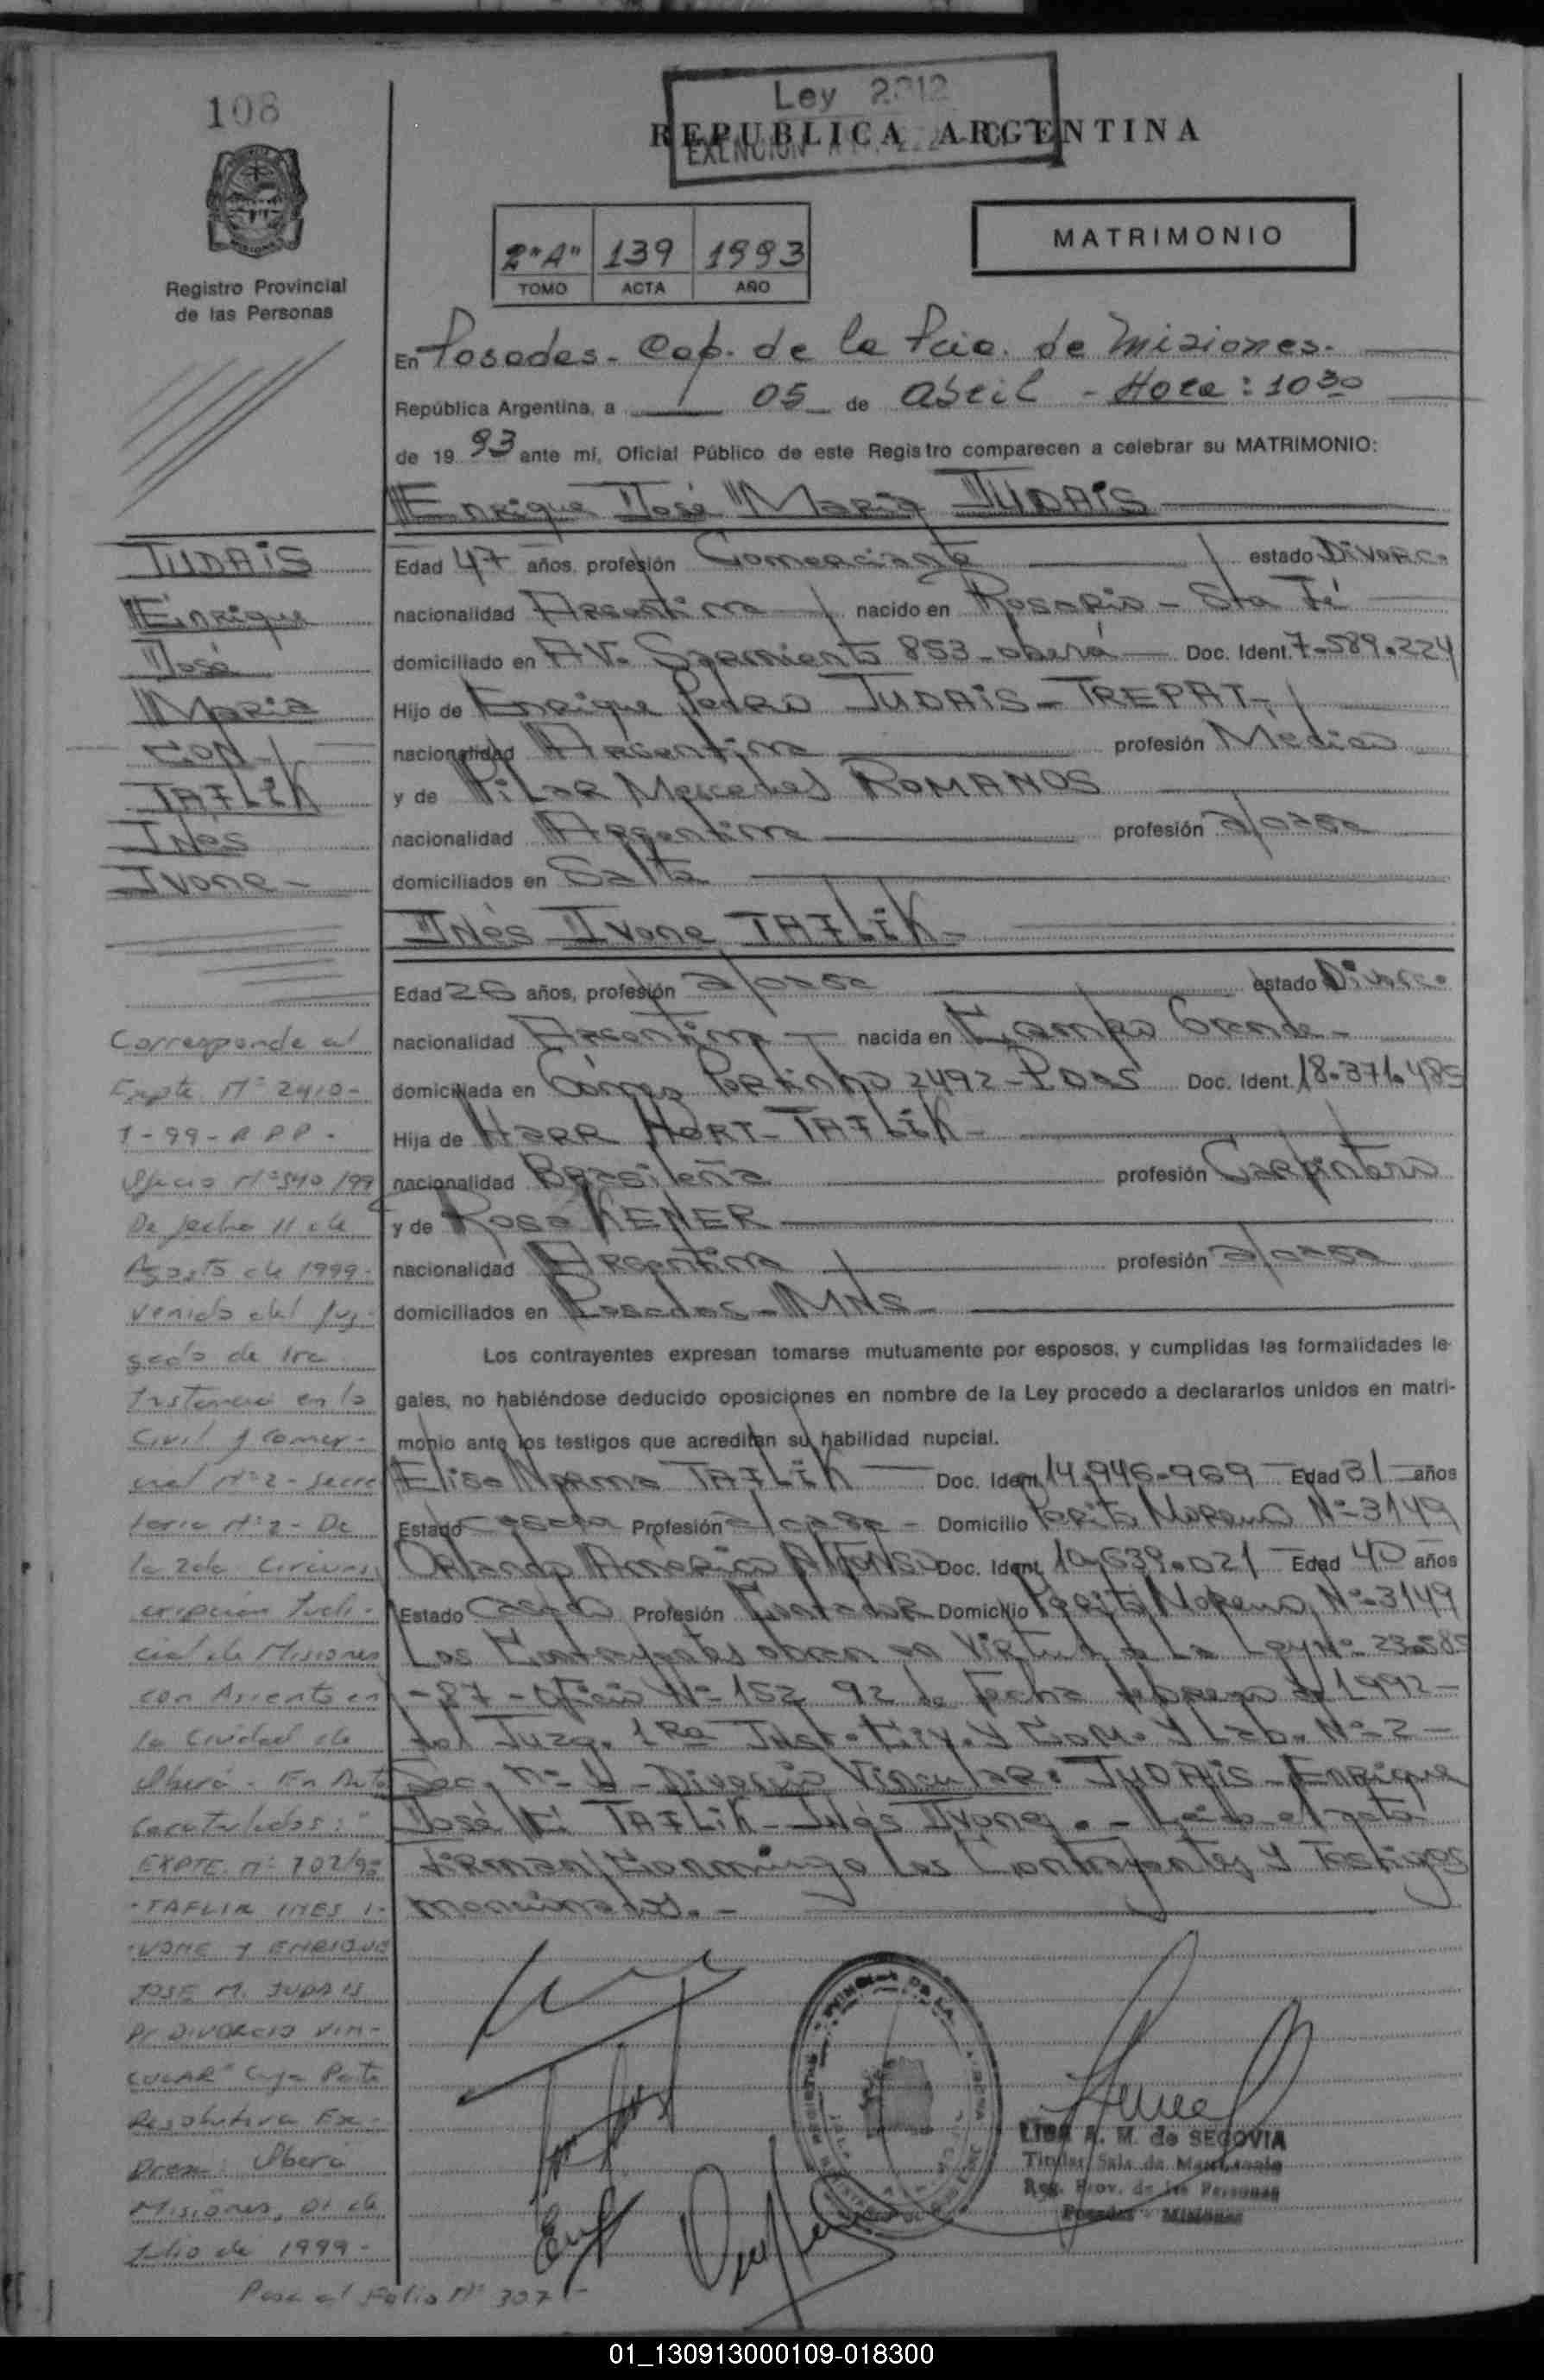 108
Ley 2912
REPUBLICA ARGENTINA
EXENCION
MATRIMONIO
2"A" 139 1993
TOMO ACTA AÑO
Registro Provincial
de las Personas
En Posadas - Cap. de la Pcia. de Misiones.
República Argentina, a 05 de abril - Hora: 10 30
de 19 93 ante mí, Oficial Público de este Registro comparecen a celebrar su MATRIMONIO:
Enrique José Maria JUDAIS
JUDAIS
Enrique
José
Maria
con
TAFLIK
Inés
Ivone -
Edad 47 años, profesión Comerciante estado Divorc.
nacionalidad Argentina nacido en Rosario - Sta Fé
domiciliado en AV. Sarmiento 853 - oberá Doc. Ident. 7.589.224
Hijo de Enrique Pedro JUDAIS - TREPAT -
nacionalidad Argentina profesión Médico
y de Pilar Mercedes ROMANOS
nacionalidad Argentina profesión a/casa
domiciliados en Salta
Inés Ivone TAFLIK -
Edad 26 años, profesión a/casa estado Divorc.
nacionalidad Argentina nacida en Campo Grande -
domiciliada en 2492 - Pdas Doc. Ident. 18.371.485
Hija de TAFLIK -
nacionalidad Brasileña profesión Carpintero
y de Rosa KENER
nacionalidad Argentina profesión a/casa
domiciliados en Posadas - MNS -
Los contrayentes expresan tomarse mutuamente por esposos, y cumplidas las formalidades le-
gales, no habiéndose deducido oposiciones en nombre de la Ley procedo a declararlos unidos en matri-
monio ante los testigos que acreditan su habilidad nupcial.
Elisa Norma TAFLIK Doc. Ident. 14.946.969 Edad 31 años
Estado casada Profesión a/casa - Domicilio Perito Moreno Nº 3149
Orlando Americo Alfonso Doc. Ident. 10.639.021 Edad 40 años
Estado Casado Profesión Contador Domicilio Perito Moreno Nº 3149
Los Contrayentes obran en Virtud a La Ley Nº 23.
-87 - Oficio Nº 152 92 de fecha febrero de 1992 -
del Juzg. 1Ra Inst. Civ. y Com. y Lab. Nº 2 -
Sec. nº 1 - Divorcio Vincular: JUDAIS - Enrique
José C/ TAFLIK - Inés Ivone. - Leida el acta
firman conmigo los Contrayentes y Testigos
mencionados. -
Corresponde al
Expte. Nº 2410 -
1 - 99 - R P P -
Oficio Nº 540/99
De fecha 11 de
Agosto de 1999 -
venido del Juz-
gado de 1ra
Instancia en lo
Civil y Comer-
cial Nº 2 - Secre
taria Nº 2 - De
la 2da Circuns-
cripción Judi-
cial de Misiones
con Asiento en
la Ciudad de
Oberá - En Auto
Caratulados: "
EXPTE. Nº 702/98
- TAFLIK INES I-
VONE Y ENRIQUE
JOSE M. JUDAIS
P/ DIVORCIO VIN-
CULAR" Cuya Parte
Resolutiva Ex-
presa: Oberá
Misiones, 01 de
Julio de 1999 -
Pasa al Folio Nº 307 -
A. M. de SEGOVIA
Titular Sala de Matrimonio
Reg. Prov. de las Personas
Posadas - Misiones
01_130913000109-018300